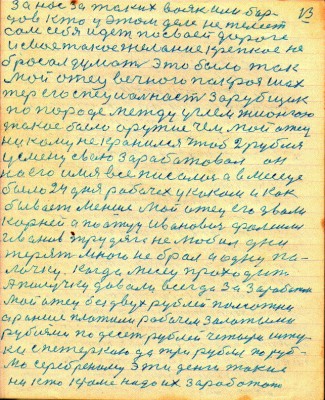 13
за нос за таких вояк или бар
цов кто у этом деле не
сам себя идет по своей дороге
и свое такое желание крепкое не
бросал думать это было так
мой отец вечного покроя шах
тер его специальность зарубщик
по породе между углем
такое было орутие чем мой отец
ни кому не кранился чтоб 2 рубля
у смену свою зарабатовал он
на его имя все писалися а в месеце
было 24 дня рабочех у каком и как
бывает меньше мой отец его звали
корней а по атчу Иванович фамилия
трудяга не любил дни
терят много не брал и одну па
лочку. Когда месец проходит
а получку давали всегда за зарабаток
мой отец без двух рублей полсотни
а раньше платили рабочем залатыми
рублями по десет рублей четыри шту
ки с петеркою да три рубля по руб
лю серебреному эти деньги такие
ни кто кроме надо их заработат